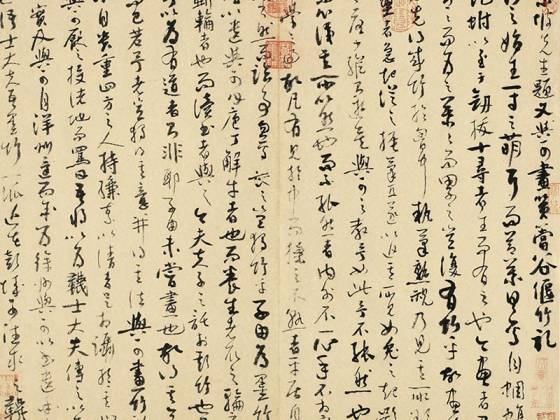 先生題文與可畫篔簹谷偃竹記
之始生一寸之萌耳而節葉具焉自蜩腹
蛇蚹以至于劍拔十尋者生而有之也今畫者
節而為之葉葉而累之豈復有竹乎故畫
先得成竹於胸中執筆熟視乃見其所欲
者急起從之振筆直遂以追其所見如兔起鶻
少縱則逝矣與可之教予如此予不能然也
心識其所以然而不能然者內外不一心手不相
學之過也故凡有見於中而操之不熟者平居自
忽焉喪之豈獨竹乎子由為墨竹
遺與可曰庖丁解牛者也而養生者取之
斲輪者也而讀書者與之今夫夫子之託於斯竹也
以為有道者則非耶子由未嘗畫也故得其意
已若予者豈獨得其意并得其法與可畫竹
自貴重四方之人持縑素而請者足相躡於其
與可厭之投諸地而罵曰吾將以為韈士大夫傳之以
實及與可自洋州還而余為徐州與可以書遺余
語士大夫吾墨竹一派近在彭城可往求之韈